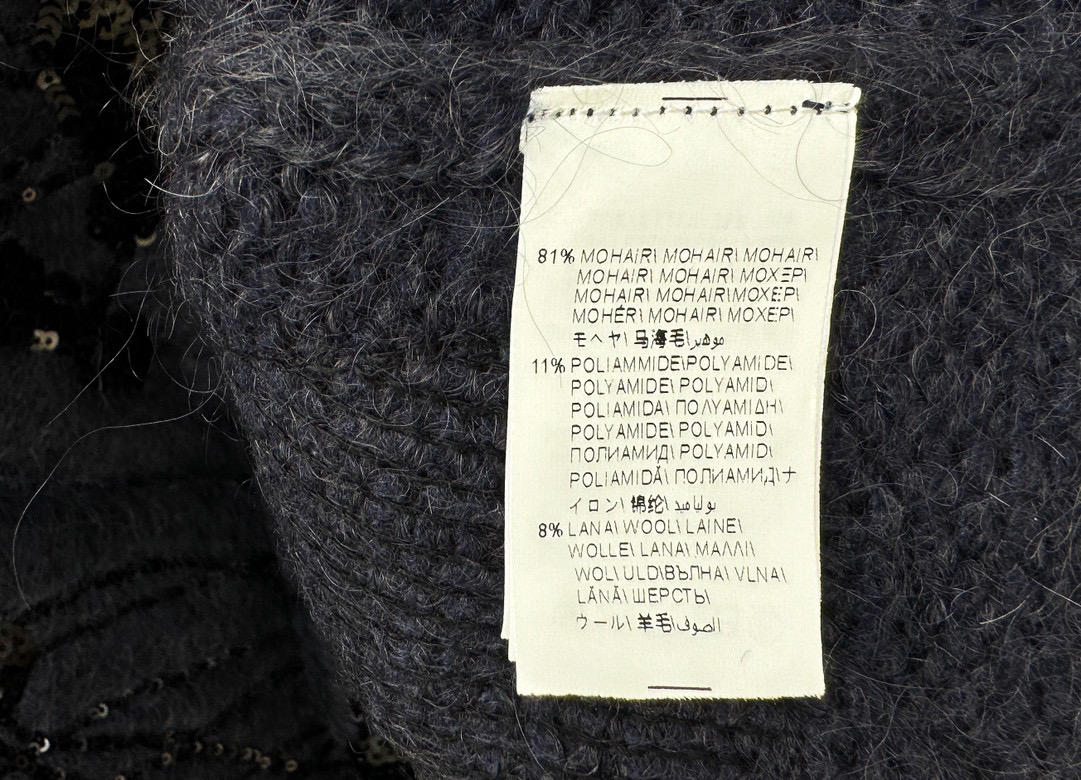 81% MOHAIR\ MOHAIR\ MOHAIR\
MOHAIR\ MOHAIR\ ΜΟΧΞΡ\
MOHAIR\ MOHAIR\МОХЕР\
MOHÉR\ MOHAIR\ МОХЕР\
モヘヤ\ 马海毛\موهير
11% POLIAMMIDE\POLYAMIDE\
POLYAMIDE\ POLYAMID\
POLIAMIDA\ ΠΟΛΥΑΜΙΔΗ\
POLYAMIDE\ POLYAMID\
ПОЛИАМИД\ POLYAMID\
POLIAMIDĂ\ ПОЛИАМИД\ナ
イロン\ 锦纶\ بولياميد
8% LANA\ WOOL\ LAINE\
WOLLE\ LANA\ ΜΑΛΛΙ\
WOL\ ULD\ВЪЛНА\ VLNA\
LÂNĂ\ ШЕРСТЬ\
ウール\ 羊毛\الصوف